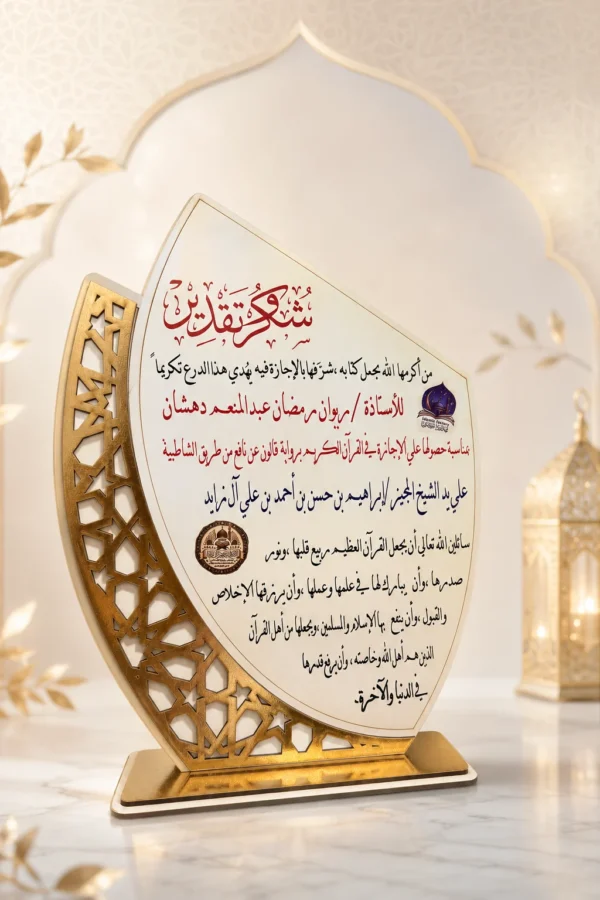 شكر وتقدير
من أكرمها الله بحمل كتابه، شرفها بالإجازة فيه يُهدي هذا الدرع تكريماً
للأستاذة / ريوان رمضان عبدالمنعم دهشان
بمناسبة حصولها علي الإجازة في القرآن الكريم برواية قالون عن نافع من طريق الشاطبية
علي يد الشيخ المجيز /إبراهيم بن حسن بن أحمد بن علي آل زايد
سائلين الله تعالى أن يجعل القرآن العظيم ربيع قلبها ،ونور
صدرها ،وأن يبارك لها في علمها وعملها ،وأن يرزقها الإخلاص
والقبول ،وأن ينفع بها الإسلام والمسلمين ،ويجعلها من أهل القرآن
الذين هم أهل الله وخاصته ، وأن يرفع قدرها
في الدنيا والآخرة.